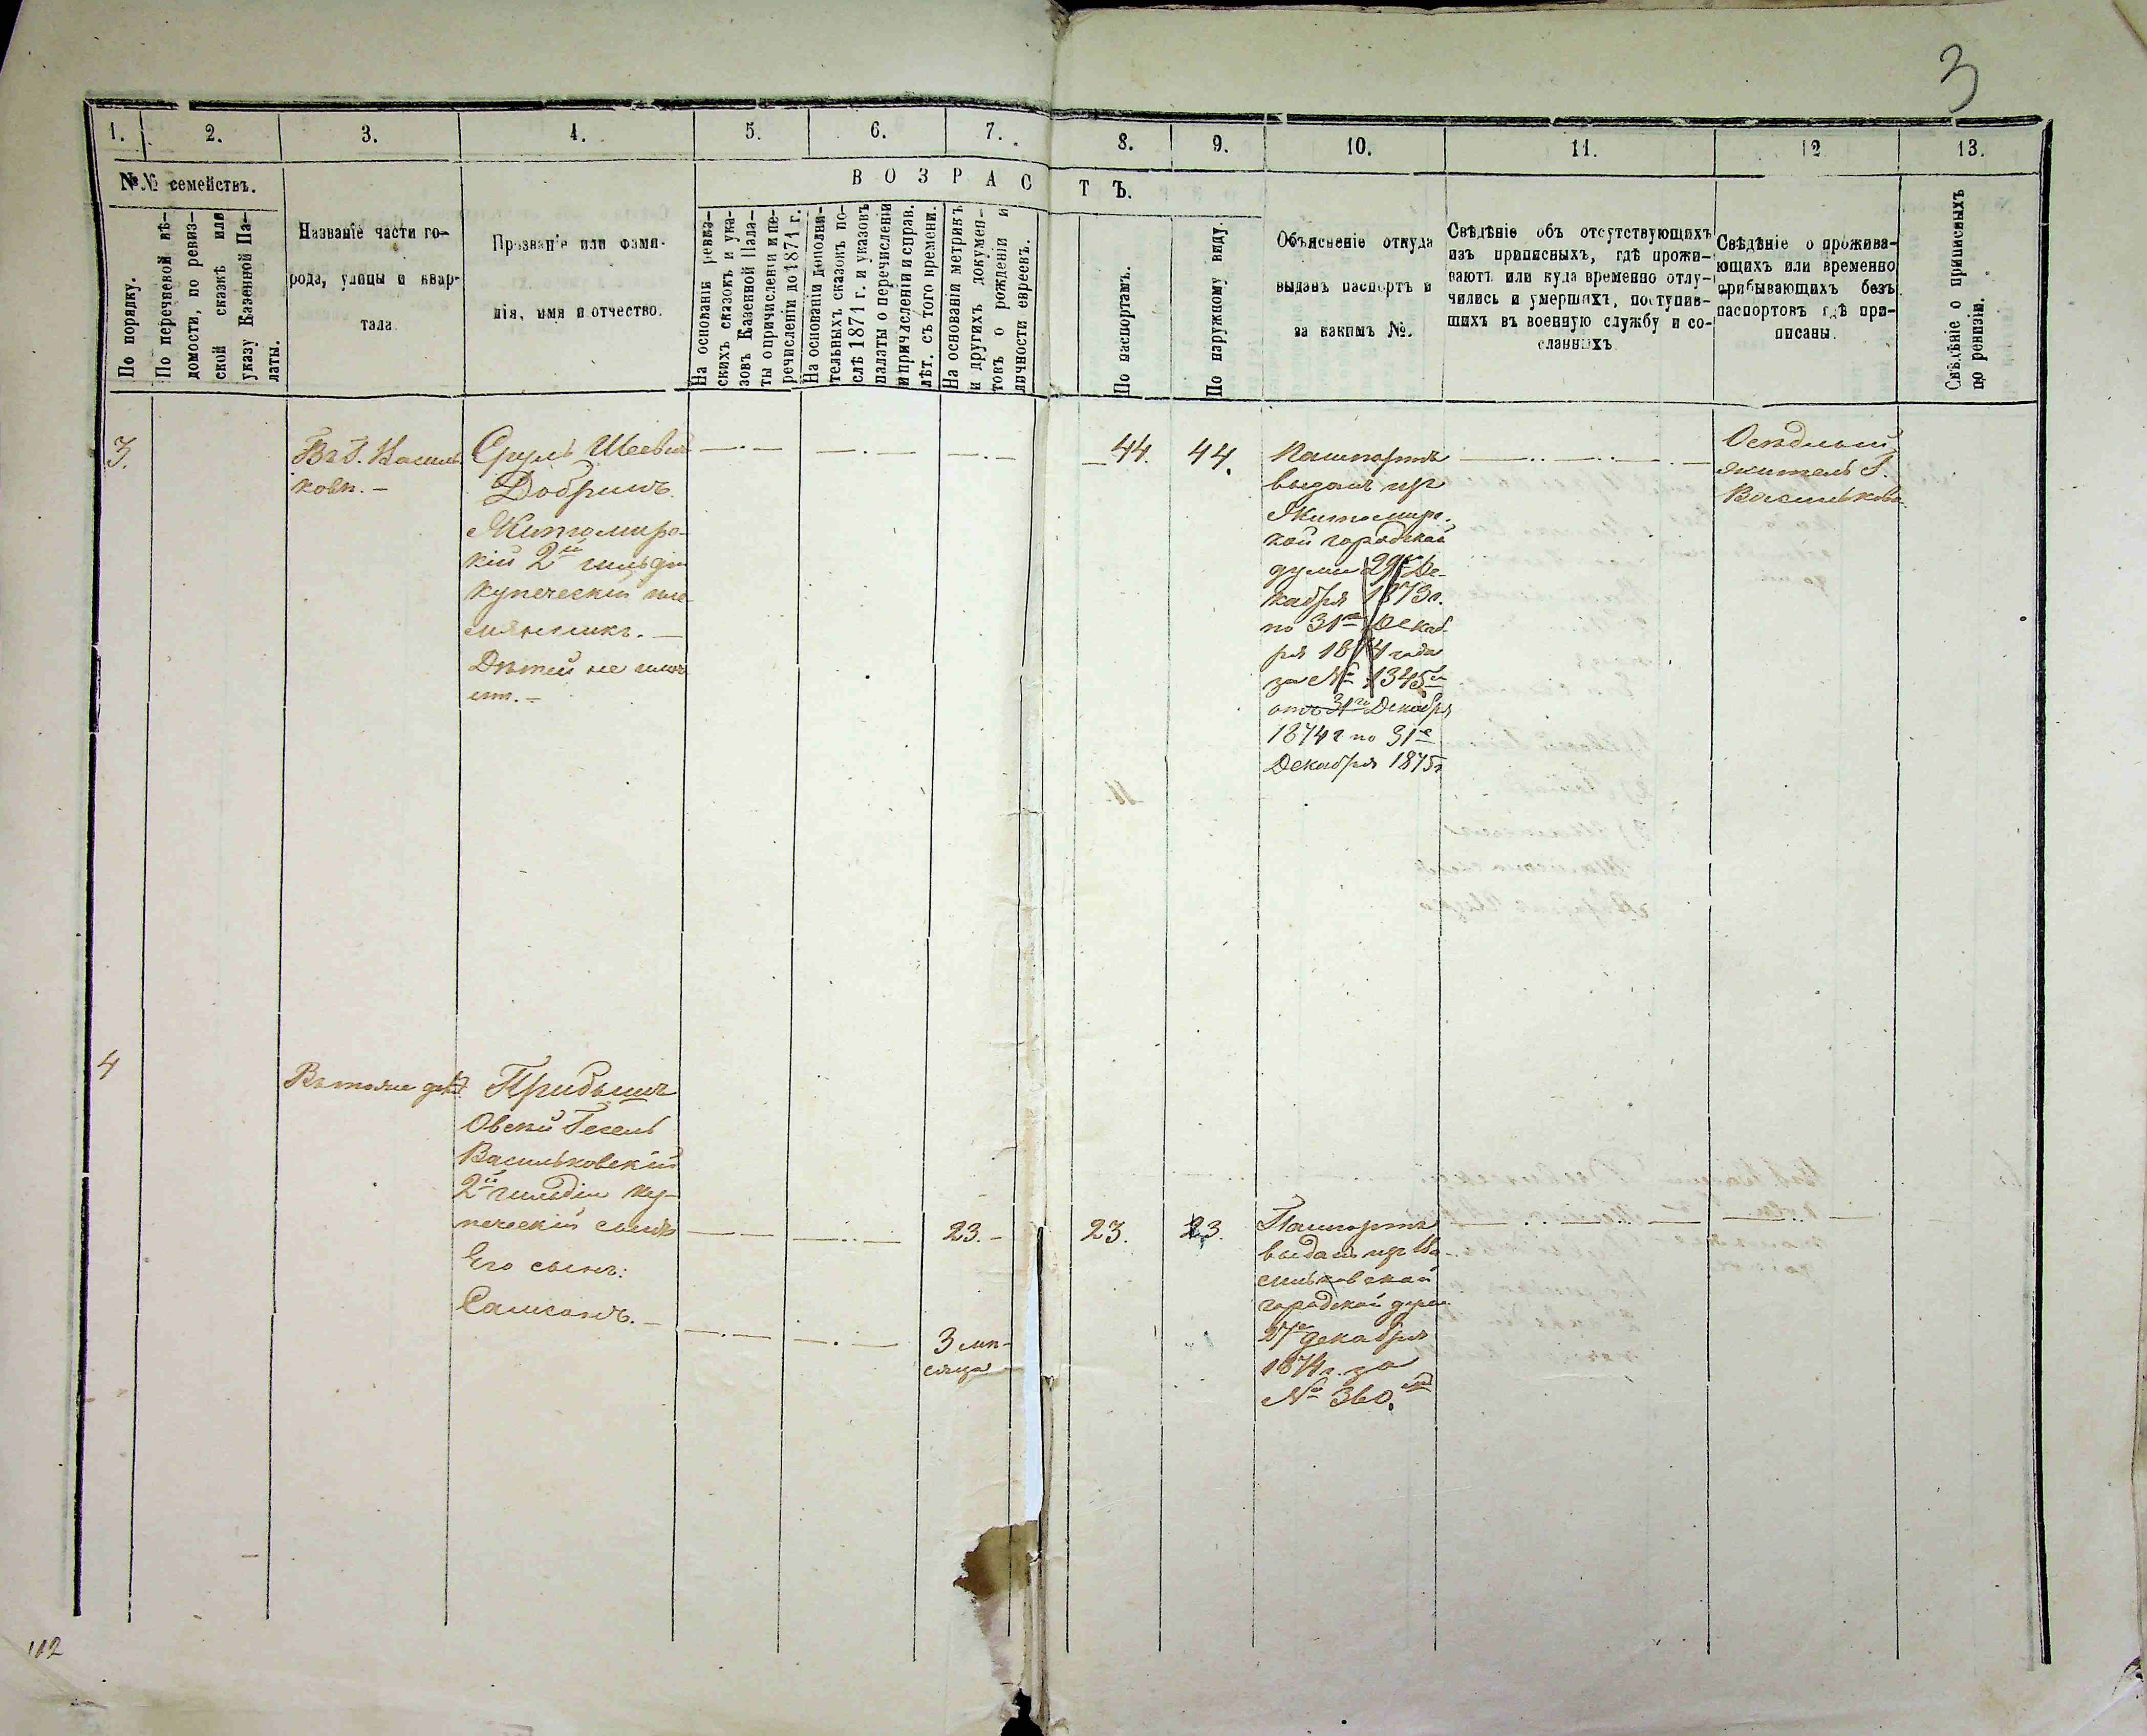 3
1.
2.
3.
4.
5.
6.
7.
8.
9.
10.
11.
12
13.
№№ семействъ.
По порядку.
По перечневой вѣ-
домости, по ревиз-
ской сказкѣ или
указу Казенной Па-
латы.
Названіе части го-
рода, улицы и квар-
тала.
Прозваніе или фами-
лія, имя и отчество.
ВОЗРАСТЪ.
На основаніи ревиз-
скихъ сказокъ и ука-
зовъ Казенной Пала-
ты о причисленіи и пе-
речисленіи до 1871 г.
На основаніи дополни-
тельныхъ сказокъ по-
слѣ 1871 г. и указовъ
палаты о перечисленіи
и причисленіи и справ.
лѣт. съ того времени.
На основаніи метрикъ
и другихъ докумен-
товъ о рожденіи и
личности евреевъ.
По паспортамъ.
По наружному виду.
Объясненіе откуда
выданъ паспортъ и
за какимъ №.
Свѣдѣніе объ отсутствующихъ
изъ приписныхъ, гдѣ прожи-
ваютъ или куда временно отлу-
чились и умершихъ, поступив-
шихъ въ военную службу и со-
сланныхъ
Свѣдѣніе о прожива-
ющихъ или временно
прибывающихъ безъ
паспортовъ гдѣ при-
писаны.
Свѣдѣніе о приписныхъ
по ревизіи.
3.
Въ Г. Василь
ковѣ. —
Сруль Шеевичъ
Добришъ
Житомирс-
кій 2й гильдіи
купеческій пле
мянникъ. —
Дѣтей не имѣ
етъ. —
44.
44.
Пашпортъ
выданъ изъ
Житомирс.
кой городской
думы 29го Де-
кабря 1873г.
по 31е Декаб
ря 1874 года
за № 1345м
отъ 31го Декабря
1874 г по 31е
Декабря 1875г
Осѣдлый
житель Г.
Василькова
4
Въ томже домѣ
Васильковскій
2й гильдіи ку-
печескій сынъ
Его сынъ:
Самсонъ. —
23. —
3 мѣ-
сяца
23.
23.
Пашпортъ
выданъ изъ Ва-
сильковской
городской думы
27го декабря
1874 г. за
№ 360.
112